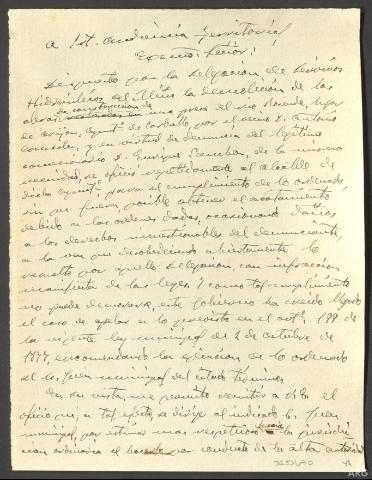 A Ltd. Audiencia Territorial
Excmo. Señor:
Dispuesto por la Delegación de Servicios
Hidráulicos del Miño la demolición de las
obras de construcción de una presa del río lugar
de Ayunt.º de Carballo, por el vecino D. Antonio
y en virtud de denuncia del legítimo
concesionario D. Enrique Sánchez, de la misma
vecindad, se ofició repetidamente al Alcalde de
dicho Ayunt.º para el cumplimiento de lo ordenado,
sin que fuera posible obtener el acatamiento
debido a las órdenes dadas, ocasionando daños
a los derechos incuestionables del denunciante,
a la vez que desobediencia abiertamente lo
resuelto por aquella Delegación, con infracción
manifiesta de las leyes. Y como tal cumplimiento
no puede demorarse, este Gobierno ha creído llegado
el caso de apelar a lo previsto en el artº 199 de
la vigente ley municipal de 2 de octubre de
1877, encomendando la ejecución de lo ordenado
al Sr. Juez municipal del citado término.
En su vista, me permito remitir a V.E. el
oficio que, a tal efecto, se dirige al indicado Sr. Juez
municipal, por estimar más respetuoso para la jurisdic
ción ordinaria el hacerlo por conducto de la alta autoridad
32531/90 46
ARG